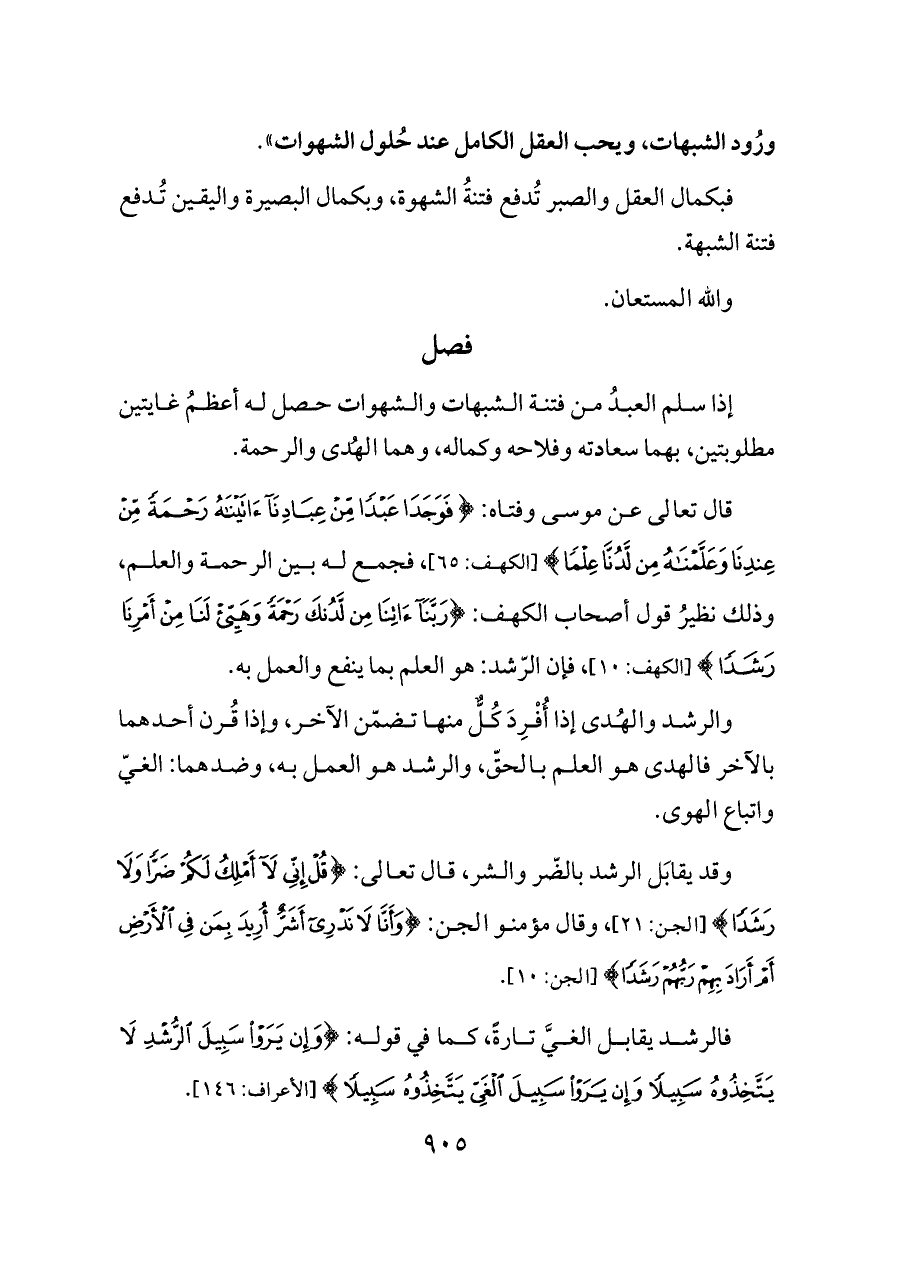 ورُود الشبهات، ويحب العقل الكامل عند حُلول الشهوات».
فبكمال العقل والصبر تُدفع فتنةُ الشهوة، وبكمال البصيرة واليقين تُدفع
فتنة الشبهة.
والله المستعان.
فصل
إذا سلم العبدُ من فتنة الشبهات والشهوات حصل له أعظمُ غايتين
مطلوبتين، بهما سعادته وفلاحه وكماله، وهما الهُدى والرحمة.
قال تعالى عن موسى وفتاه: ﴿فَوَجَدَا عَبْدًا مِّنْ عِبَادِنَآ ءَاتَيْنَٰهُ رَحْمَةً مِّنْ
عِندِنَا وَعَلَّمْنَٰهُ مِن لَّدُنَّا عِلْمًا﴾ [الكهف: ٦٥]، فجمع له بين الرحمة والعلم،
وذلك نظيرُ قول أصحاب الكهف: ﴿رَبَّنَآ ءَاتِنَا مِن لَّدُنكَ رَحْمَةً وَهَيِّئْ لَنَا مِنْ أَمْرِنَا
رَشَدًا﴾ [الكهف: ١٠]، فإن الرّشد: هو العلم بما ينفع والعمل به.
والرشد والهُدى إذا أُفْرِدَ كُلٌّ منها تضمّن الآخر، وإذا قُرن أحدهما
بالآخر فالهدى هو العلم بالحقّ، والرشد هو العمل به، وضدهما: الغيّ
واتباع الهوى.
وقد يقابَل الرشد بالضّر والشر، قال تعالى: ﴿قُلْ إِنِّي لَآ أَمْلِكُ لَكُمْ ضَرًّا وَلَا
رَشَدًا﴾ [الجن: ٢١]، وقال مؤمنو الجن: ﴿وَأَنَّا لَا نَدْرِىٓ أَشَرٌّ أُرِيدَ بِمَن فِي ٱلْأَرْضِ
أَمْ أَرَادَ بِهِمْ رَبُّهُمْ رَشَدًا﴾ [الجن: ١٠].
فالرشد يقابل الغيَّ تارةً، كما في قوله: ﴿وَإِن يَرَوْا۟ سَبِيلَ ٱلرُّشْدِ لَا
يَتَّخِذُوهُ سَبِيلًا وَإِن يَرَوْا۟ سَبِيلَ ٱلْغَىِّ يَتَّخِذُوهُ سَبِيلًا﴾ [الأعراف: ١٤٦].
٩٠٥